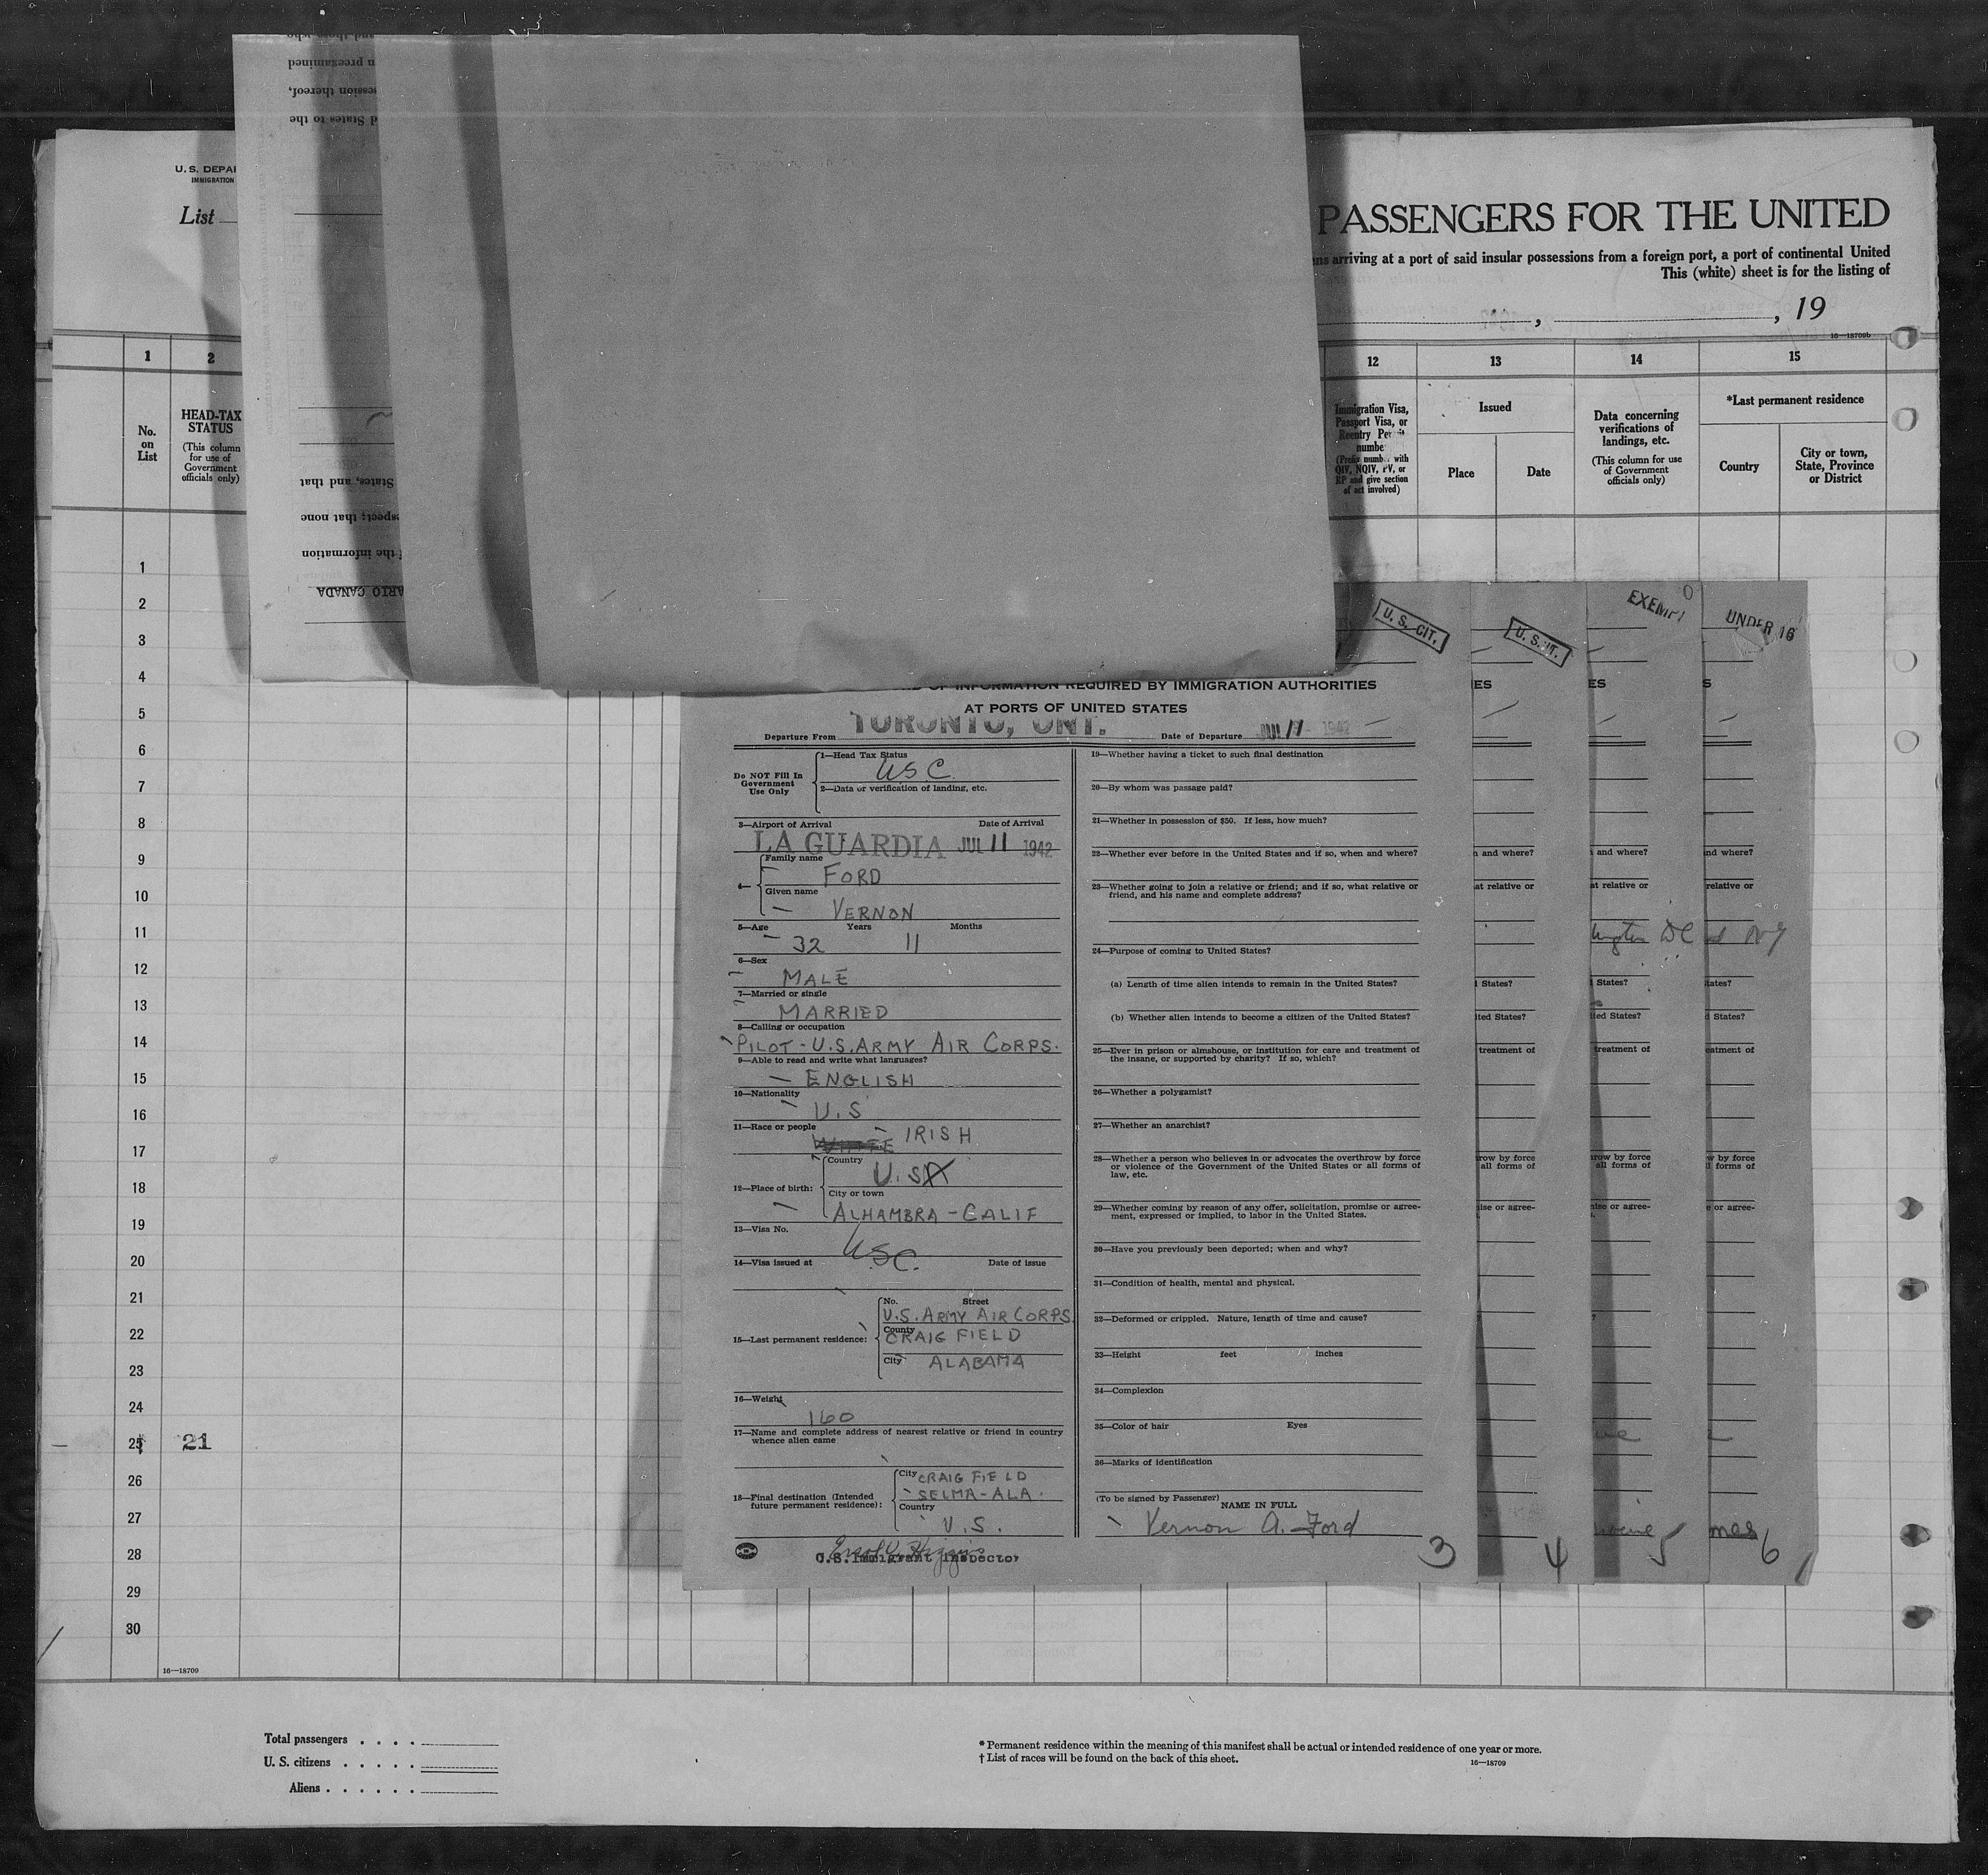 U. S. DEPAI
IMMIGRATION
List
PASSENGERS FOR THE UNITED
ns arriving at a port of said insular possessions from a foreign port, a port of continental United
This (white) sheet is for the listing of
, , 19
16—18709b
and them who
n preexamined
session thereof,
d States to the
States, and that
spect; that none
f the information
ARIO CANADA
1 2 12 13 14 15
No. on List
HEAD-TAX STATUS
(This column for use of Government officials only)
Immigration Visa, Passport Visa, or Reentry Permit number
(Prefix number with QIV, NQIV, PV, or RP and give section of act involved)
Issued
Place Date
Data concerning verifications of landings, etc.
(This column for use of Government officials only)
*Last permanent residence
Country
City or town, State, Province or District
1
2
3
4
5
6
7
8
9
10
11
12
13
14
15
16
17
18
19
20
21
22
23
24
25 21
26
27
28
29
30
16—18709
U. S. CIT.
U. S. IT.
EXEMPT
UNDER 16
OF INFORMATION REQUIRED BY IMMIGRATION AUTHORITIES
AT PORTS OF UNITED STATES
Departure From TORONTO, ONT. Date of Departure JUL 11 1942
Do NOT Fill In Government Use Only
1—Head Tax Status
USC
2—Data or verification of landing, etc.
3—Airport of Arrival Date of Arrival
LA GUARDIA JUL 11 1942
4—
Family name
FORD
Given name
VERNON
5—Age Years Months
32 11
6—Sex
MALE
7—Married or single
MARRIED
8—Calling or occupation
PILOT - U.S. ARMY AIR CORPS.
9—Able to read and write what languages?
ENGLISH
10—Nationality
U.S
11—Race or people
WHITE IRISH
12—Place of birth:
Country
U.SA
City or town
ALHAMBRA - CALIF
13—Visa No.
USC.
14—Visa issued at Date of issue
15—Last permanent residence:
No. Street
U.S. ARMY AIR CORPS
County
CRAIG FIELD
City ALABAMA
16—Weight
160
17—Name and complete address of nearest relative or friend in country whence alien came
18—Final destination (Intended future permanent residence):
City CRAIG FIELD
SELMA - ALA.
Country
U.S.
U.S. Immigrant Inspector
19—Whether having a ticket to such final destination
20—By whom was passage paid?
21—Whether in possession of $50. If less, how much?
22—Whether ever before in the United States and if so, when and where?
23—Whether going to join a relative or friend; and if so, what relative or
friend, and his name and complete address?
24—Purpose of coming to United States?
(a) Length of time alien intends to remain in the United States?
(b) Whether alien intends to become a citizen of the United States?
25—Ever in prison or almshouse, or institution for care and treatment of
the insane, or supported by charity? If so, which?
26—Whether a polygamist?
27—Whether an anarchist?
28—Whether a person who believes in or advocates the overthrow by force
or violence of the Government of the United States or all forms of
law, etc.
29—Whether coming by reason of any offer, solicitation, promise or agree-
ment, expressed or implied, to labor in the United States.
30—Have you previously been deported; when and why?
31—Condition of health, mental and physical.
32—Deformed or crippled. Nature, length of time and cause?
33—Height feet inches
34—Complexion
35—Color of hair Eyes
36—Marks of identification
(To be signed by Passenger)
NAME IN FULL
Vernon A. Ford
3
ES
and where?
at relative or
States?
ited States?
treatment of
row by force
all forms of
ise or agree-
4
ES
and where?
at relative or
ington DC
States?
ted States?
treatment of
row by force
all forms of
ise or agree-
5
S
nd where?
relative or
NY
tates?
States?
eatment of
w by force
l forms of
e or agree-
mes
6
Total passengers . . . .
U. S. citizens . . . . .
Aliens . . . . . .
* Permanent residence within the meaning of this manifest shall be actual or intended residence of one year or more.
† List of races will be found on the back of this sheet.
16—18709